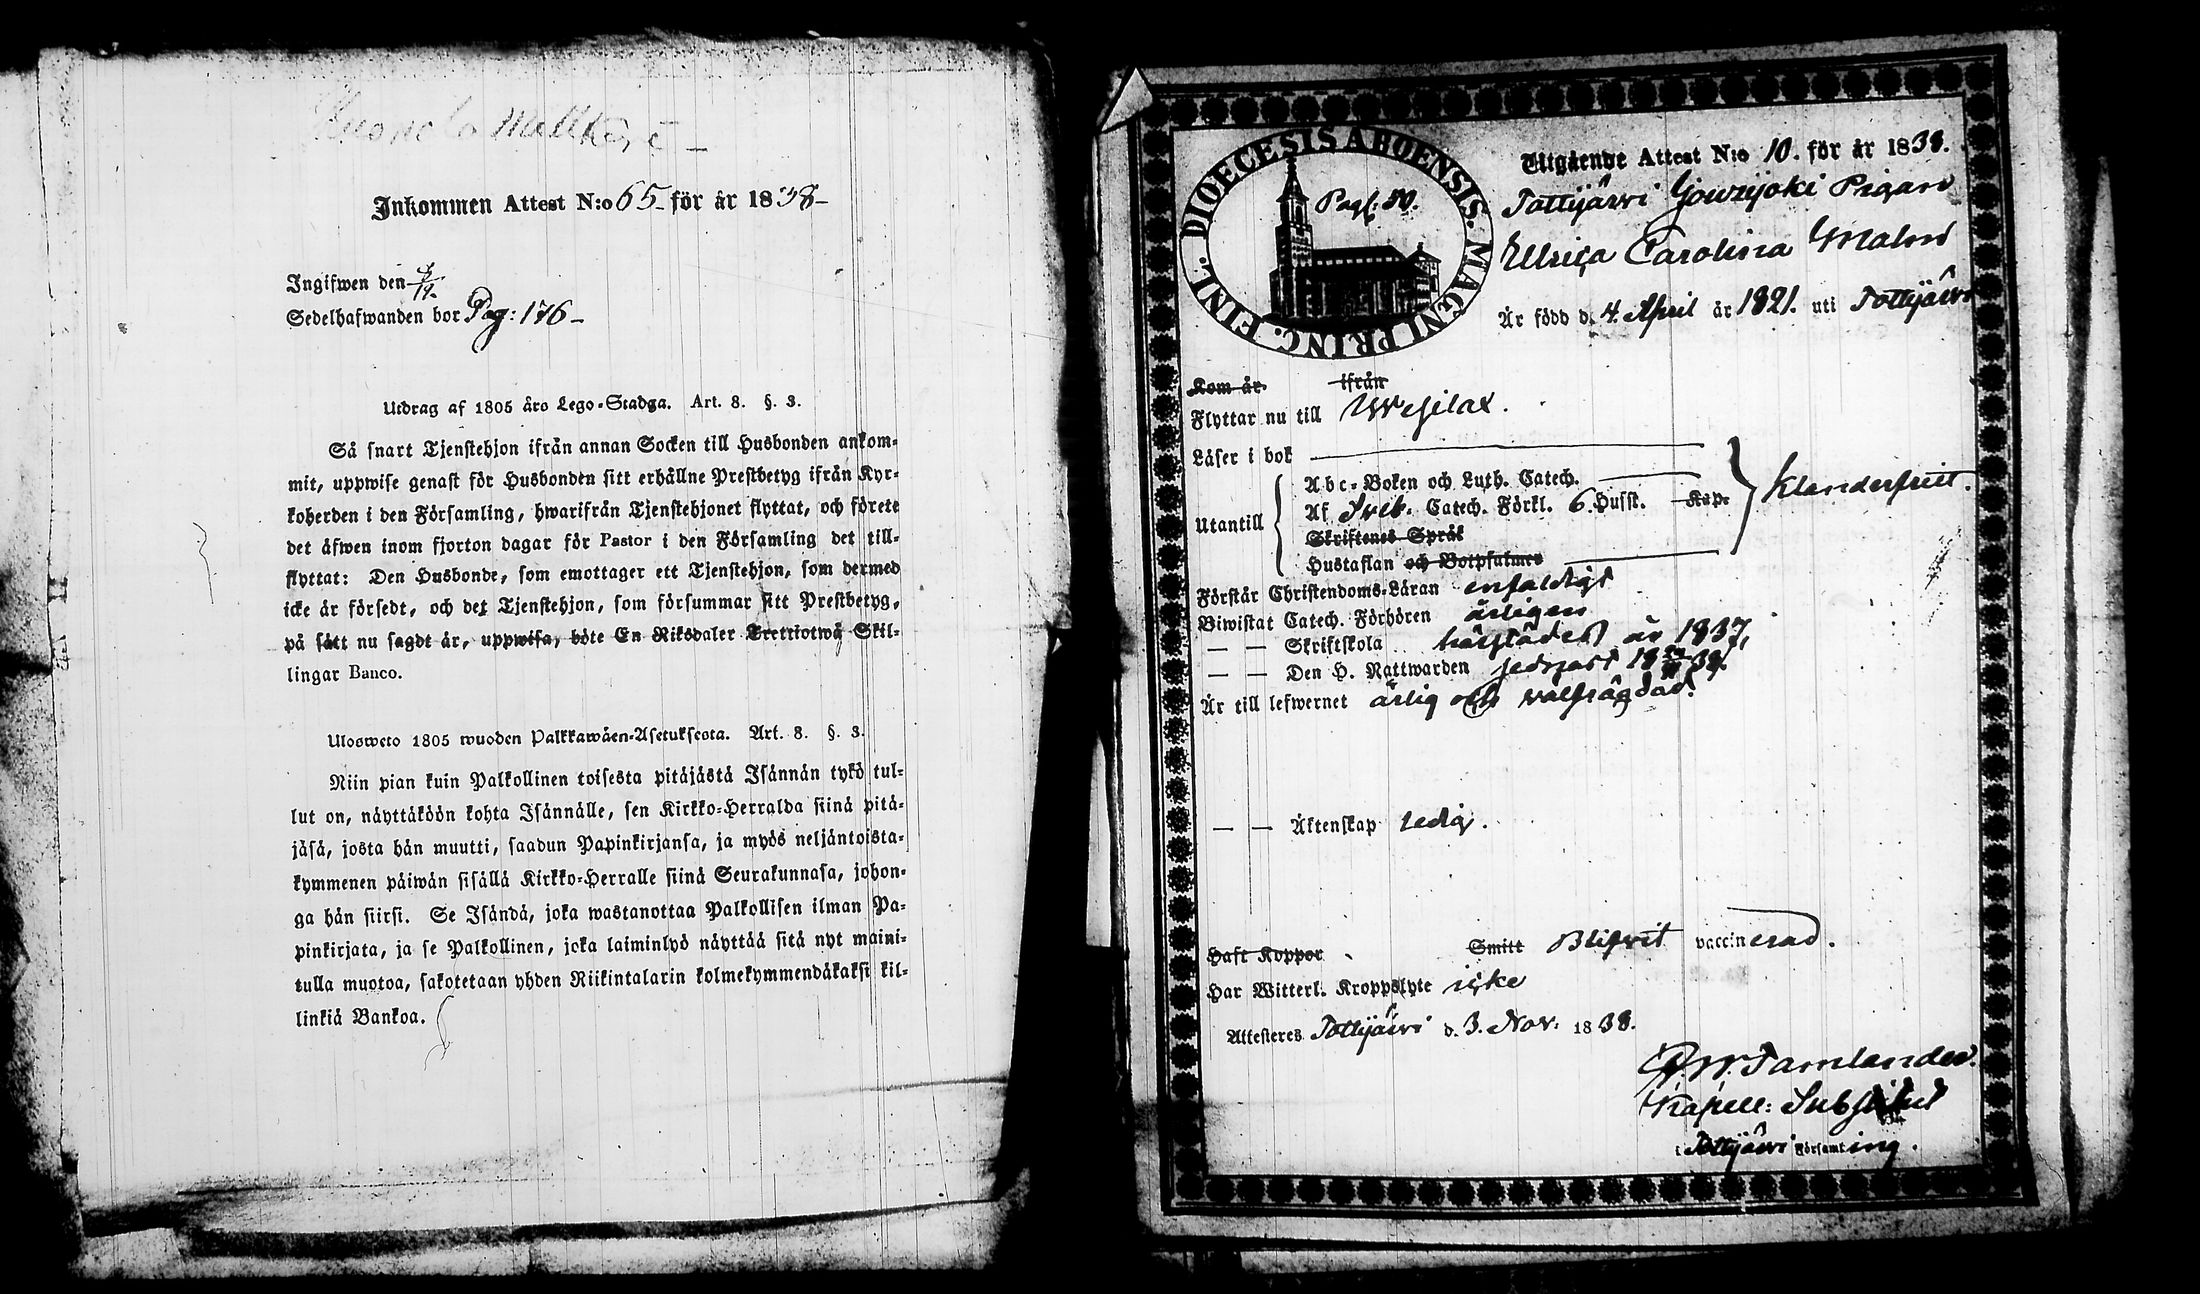 Inkommen Attest N:o 65 för år 1838
Ingifwen den 4/19.
Sedelhafwanden bor Pag: 176
Utdrag af 1805 års Lego-Stadga. Art. 8. §. 3.
Så snart Tjenstehjon ifrån annan Socken till Husbonden ankom-
mit, uppwise genast för Husbonden sitt erhållne Prestbetyg ifrån Kyr-
koherden i den Församling, hwarifrån Tjenstehjonet flyttat, och förete
det äfwen inom fjorton dagar för Pastor i den Församling det till-
flyttat: Den Husbonde, som emottager ett Tjenstehjon, som dermed
icke är försedt, och det Tjenstehjon, som försummar sitt Prestbetyg,
på sätt nu sagdt är, uppwisa, böte En Riksdaler Trettiotwå Skil-
lingar Banco.
Ulosweto 1805 wuoden Palkkawäen-Asetuksesta. Art. 8. §. 3.
Niin pian kuin Palkollinen toisesta pitäjästä Isännän tykö tul-
lut on, näyttäköön kohta Isännälle, sen Kirkko-Herralda siinä pitä-
jäsä, josta hän muutti, saadun Papinkirjansa, ja myös neljäntoista-
kymmenen päiwän sisällä Kirkko-Herralle siinä Seurakunnasa, johon-
ga hän siirsi. Se Isändä, joka wastanottaa Palkollisen ilman Pa-
pinkirjata, ja se Palkollinen, joka laiminlyö näyttää sitä nyt maini-
tulla muotoa, sakotetaan yhden Riikintalarin kolmekymmendäkaksi kil-
linkiä Bankoa.
DIOECESIS ABOENSIS. MAGNI PRINC. FINL.
Pag: 80.
Utgående Attest N:o 10. för år 1838.
Tottijärwi Pigan
Ulrica Carolina Malm
Är född d. 4 April år 1821. uti Tottijärwi
Kom år ifrån
Flyttar nu till Wesilax.
Läser i bok
Abc-Boken och Luth. Catech.
Utantill Af Sveb. Catech. Förkl. 6 Husst. Kap. Klanderfritt.
Skriftenes Språk
Hustaflan och Botpsalmer
Förstår Christendoms-Läran enfaldigt
Biwistat Catech. Förhören årligen
— — Skriftskola härstädes år 1837,
— — Den H. Nattwarden sednast 1838.
Är till lefwernet ärlig och välfrägdad.
— — Äktenskap ledig.
Haft Koppor Smitt Blifvit vaccinerad.
Har Witterl. Kroppslyte icke
Attesteres Tottijärwi d. 3. Nov. 1838.
Tamlander.
Kapell: Substitut
i Tottijärwi Församling.